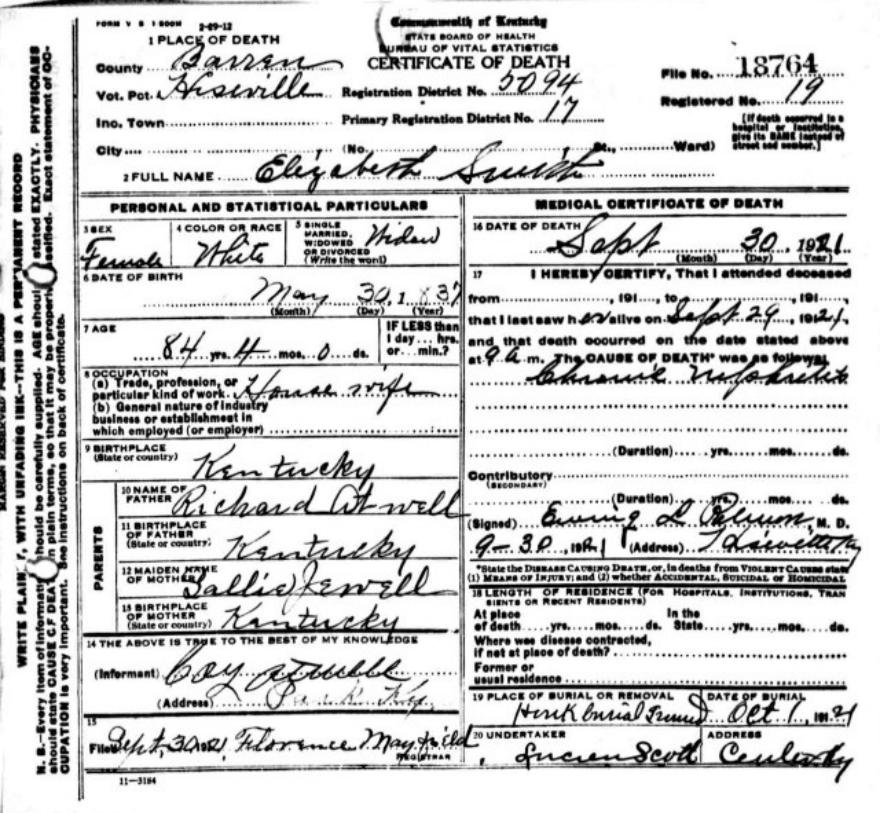 FORM V S 1 500M 2-29-12
Commonwealth of Kentucky
STATE BOARD OF HEALTH
BUREAU OF VITAL STATISTICS
CERTIFICATE OF DEATH
1 PLACE OF DEATH
County Barren
Vot. Pct. Hiseville
Inc. Town
City (No. St., Ward)
Registration District No. 5094
Primary Registration District No. 17
File No. 18764
Registered No. 19
[If death occurred in a hospital or institution, give its NAME instead of street and number.]
2 FULL NAME Elizabeth Smith
PERSONAL AND STATISTICAL PARTICULARS
3 SEX
Female
4 COLOR OR RACE
White
5 SINGLE MARRIED, WIDOWED OR DIVORCED (Write the word)
Widow
6 DATE OF BIRTH
May 30, 1 837
(Month) (Day) (Year)
7 AGE
84 yrs. 4 mos. 0 ds.
IF LESS than 1 day ... hrs. or ... min.?
8 OCCUPATION
(a) Trade, profession, or
particular kind of work. House wife
(b) General nature of industry
business or establishment in
which employed (or employer)
9 BIRTHPLACE
(State or country) Kentucky
PARENTS
10 NAME OF FATHER Richard Atwell
11 BIRTHPLACE OF FATHER (State or country) Kentucky
12 MAIDEN NAME OF MOTHER Sallie Jewell
13 BIRTHPLACE OF MOTHER (State or country) Kentucky
14 THE ABOVE IS TRUE TO THE BEST OF MY KNOWLEDGE
(Informant) Coy Atwell
(Address) Park Ky.
15
Filed Sept, 30, 1921, Florence Mayfield
REGISTRAR
11—3184
MEDICAL CERTIFICATE OF DEATH
16 DATE OF DEATH
Sept 30, 1921
(Month) (Day) (Year)
17 I HEREBY CERTIFY, That I attended deceased
from ..., 191..., to ..., 191...,
that I last saw her alive on Sept 29, 1921,
and that death occurred on the date stated above
at 9 a m. The CAUSE OF DEATH* was as follows:
Chronic Nephritis
(Duration) yrs. mos. ds.
Contributory
(SECONDARY)
(Duration) yrs. mos. ds.
(Signed) Ewing L M. D.
9-30, 1921 (Address)
*State the DISEASE CAUSING DEATH, or, in deaths from VIOLENT CAUSES state
(1) MEANS OF INJURY; and (2) whether ACCIDENTAL, SUICIDAL OR HOMICIDAL
18 LENGTH OF RESIDENCE (FOR HOSPITALS, INSTITUTIONS, TRAN
SIENTS OR RECENT RESIDENTS)
At place of death yrs. mos. ds. In the State yrs. mos. ds.
Where was disease contracted,
if not at place of death?
Former or
usual residence
19 PLACE OF BURIAL OR REMOVAL
burial Ground
DATE OF BURIAL
Oct 1, 1921
20 UNDERTAKER
Lucien Scott
ADDRESS
Center Ky
WRITE PLAIN Y, WITH UNFADING INK—THIS IS A PERMANENT RECORD
N. B.—Every item of informati should be carefully supplied. AGE shoul stated EXACTLY. PHYSICIANS
should state CAUSE OF DEAT n plain terms, so that it may be properl assified. Exact statement of OC-
CUPATION is very important. See instructions on back of certificate.